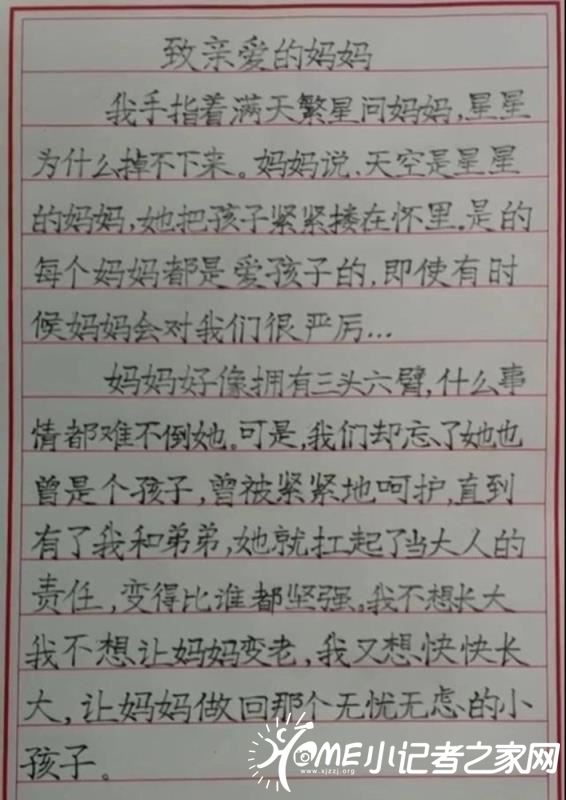 致亲爱的妈妈
我手指着满天繁星问妈妈,星星
为什么掉不下来。妈妈说,天空是星星
的妈妈,她把孩子紧紧搂在怀里。是的
每个妈妈都是爱孩子的,即使有时
候妈妈会对我们很严厉...
妈妈好像拥有三头六臂,什么事
情都难不倒她。可是,我们却忘了她也
曾是个孩子,曾被紧紧地呵护,直到
有了我和弟弟,她就扛起了当大人的
责任,变得比谁都坚强。我不想长大
我不想让妈妈变老,我又想快快长
大,让妈妈做回那个无忧无虑的小
孩子。
HOME小记者之家网
www.xjzzj.org